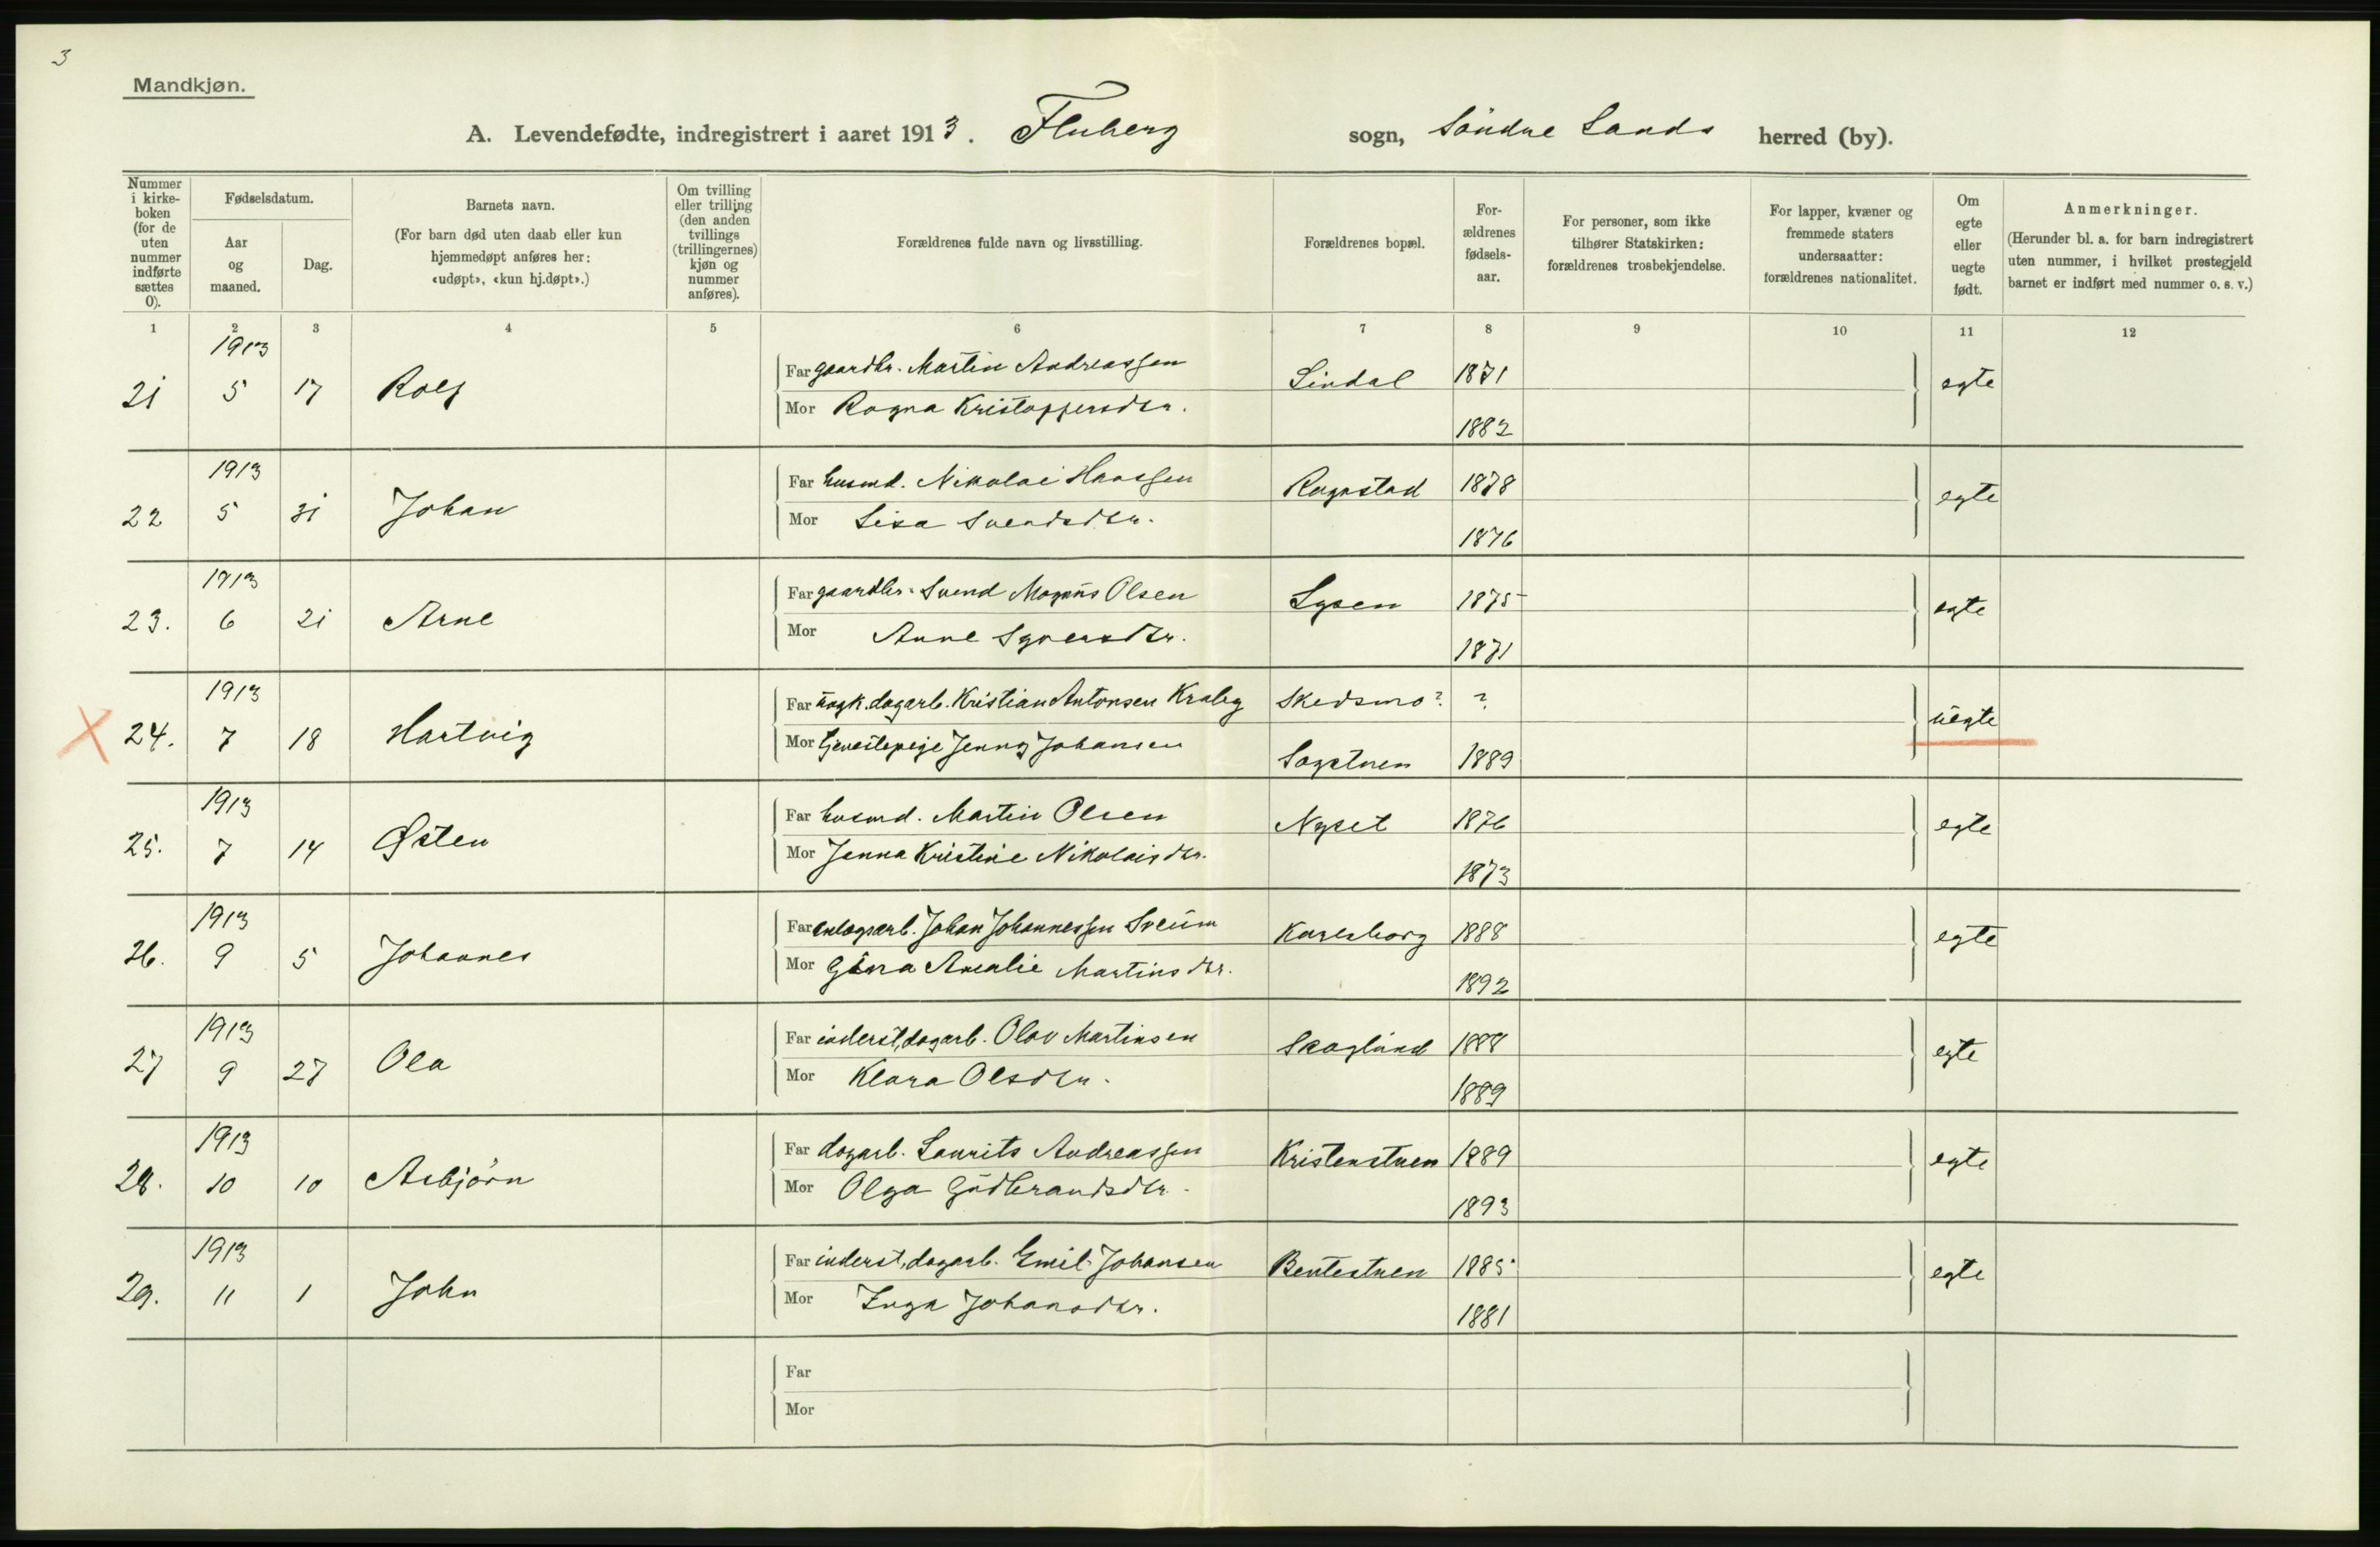 3
Mandkjøn.
A. Levendefødte, indregistrert i aaret 1913. Fluberg sogn, Söndre Lands herred (by).
Nummer i kirkeboken (for de uten nummer indførte sættes 0).
Fødselsdatum.
Aar og maaned.
Dag.
Barnets navn.
(For barn død uten daab eller kun hjemmedøpt anføres her: «udøpt», «kun hj.døpt».)
Om tvilling eller trilling (den anden tvillings (trillingernes) kjøn og nummer anføres).
Forældrenes fulde navn og livsstilling.
Forældrenes bopæl.
Forældrenes fødselsaar.
For personer, som ikke tilhører Statskirken: forældrenes trosbekjendelse.
For lapper, kvæner og fremmede staters undersaatter: forældrenes nationalitet.
Om egte eller uegte født.
Anmerkninger.
(Herunder bl. a. for barn indregistrert uten nummer, i hvilket prestegjeld barnet er indført med nummer o. s. v.)
1 2 3 4 5 6 7 8 9 10 11 12
1913
21 5 17 Rolf Far gaardbr. Martin Andreassen Lindal 1871 egte
Mor Ragna Kristoffersdtr. 1882
1913
22 5 31 Johan Far husmd. Nikolai Hanssen Rognstad 1878 egte
Mor Lisa Svendsdtr. 1876
1913
23. 6 21 Arne Far gaardbr. Svend Magnus Olsen Lysen 1875 egte
Mor Anne Syversdtr. 1871
1913
24. 7 18 Hartvig Far ungk. dagarb. Kristian Antonsen Skedsmo? ? uegte
Mor tjenestepige Jenny Johansen Sagstuen 1889
1913
25. 7 14 Østen Far husmd. Martin Olsen Nyset 1876 egte
Mor Jenna Kristine Nikolaisdtr. 1873
1913
26. 9 5 Johannes Far Johan Johannessen Sveum Karlsborg 1888 egte
Mor Gina Amalie Martinsdtr. 1892
1913
27 9 27 Ola Far inderst, dagarb. Olav Martinsen Skoglund 1888 egte
Mor Klara Olsdtr. 1889
1913
28. 10 10 Asbjörn Far dagarb. Laurits Andreassen Kristenstuen 1889 egte
Mor Olga Gudbrandsdtr. 1893
1913
29. 11 1 John Far inderst, dagarb. Emil Johansen Bentestuen 1885 egte
Mor Inga Johansdtr. 1881
Far
Mor